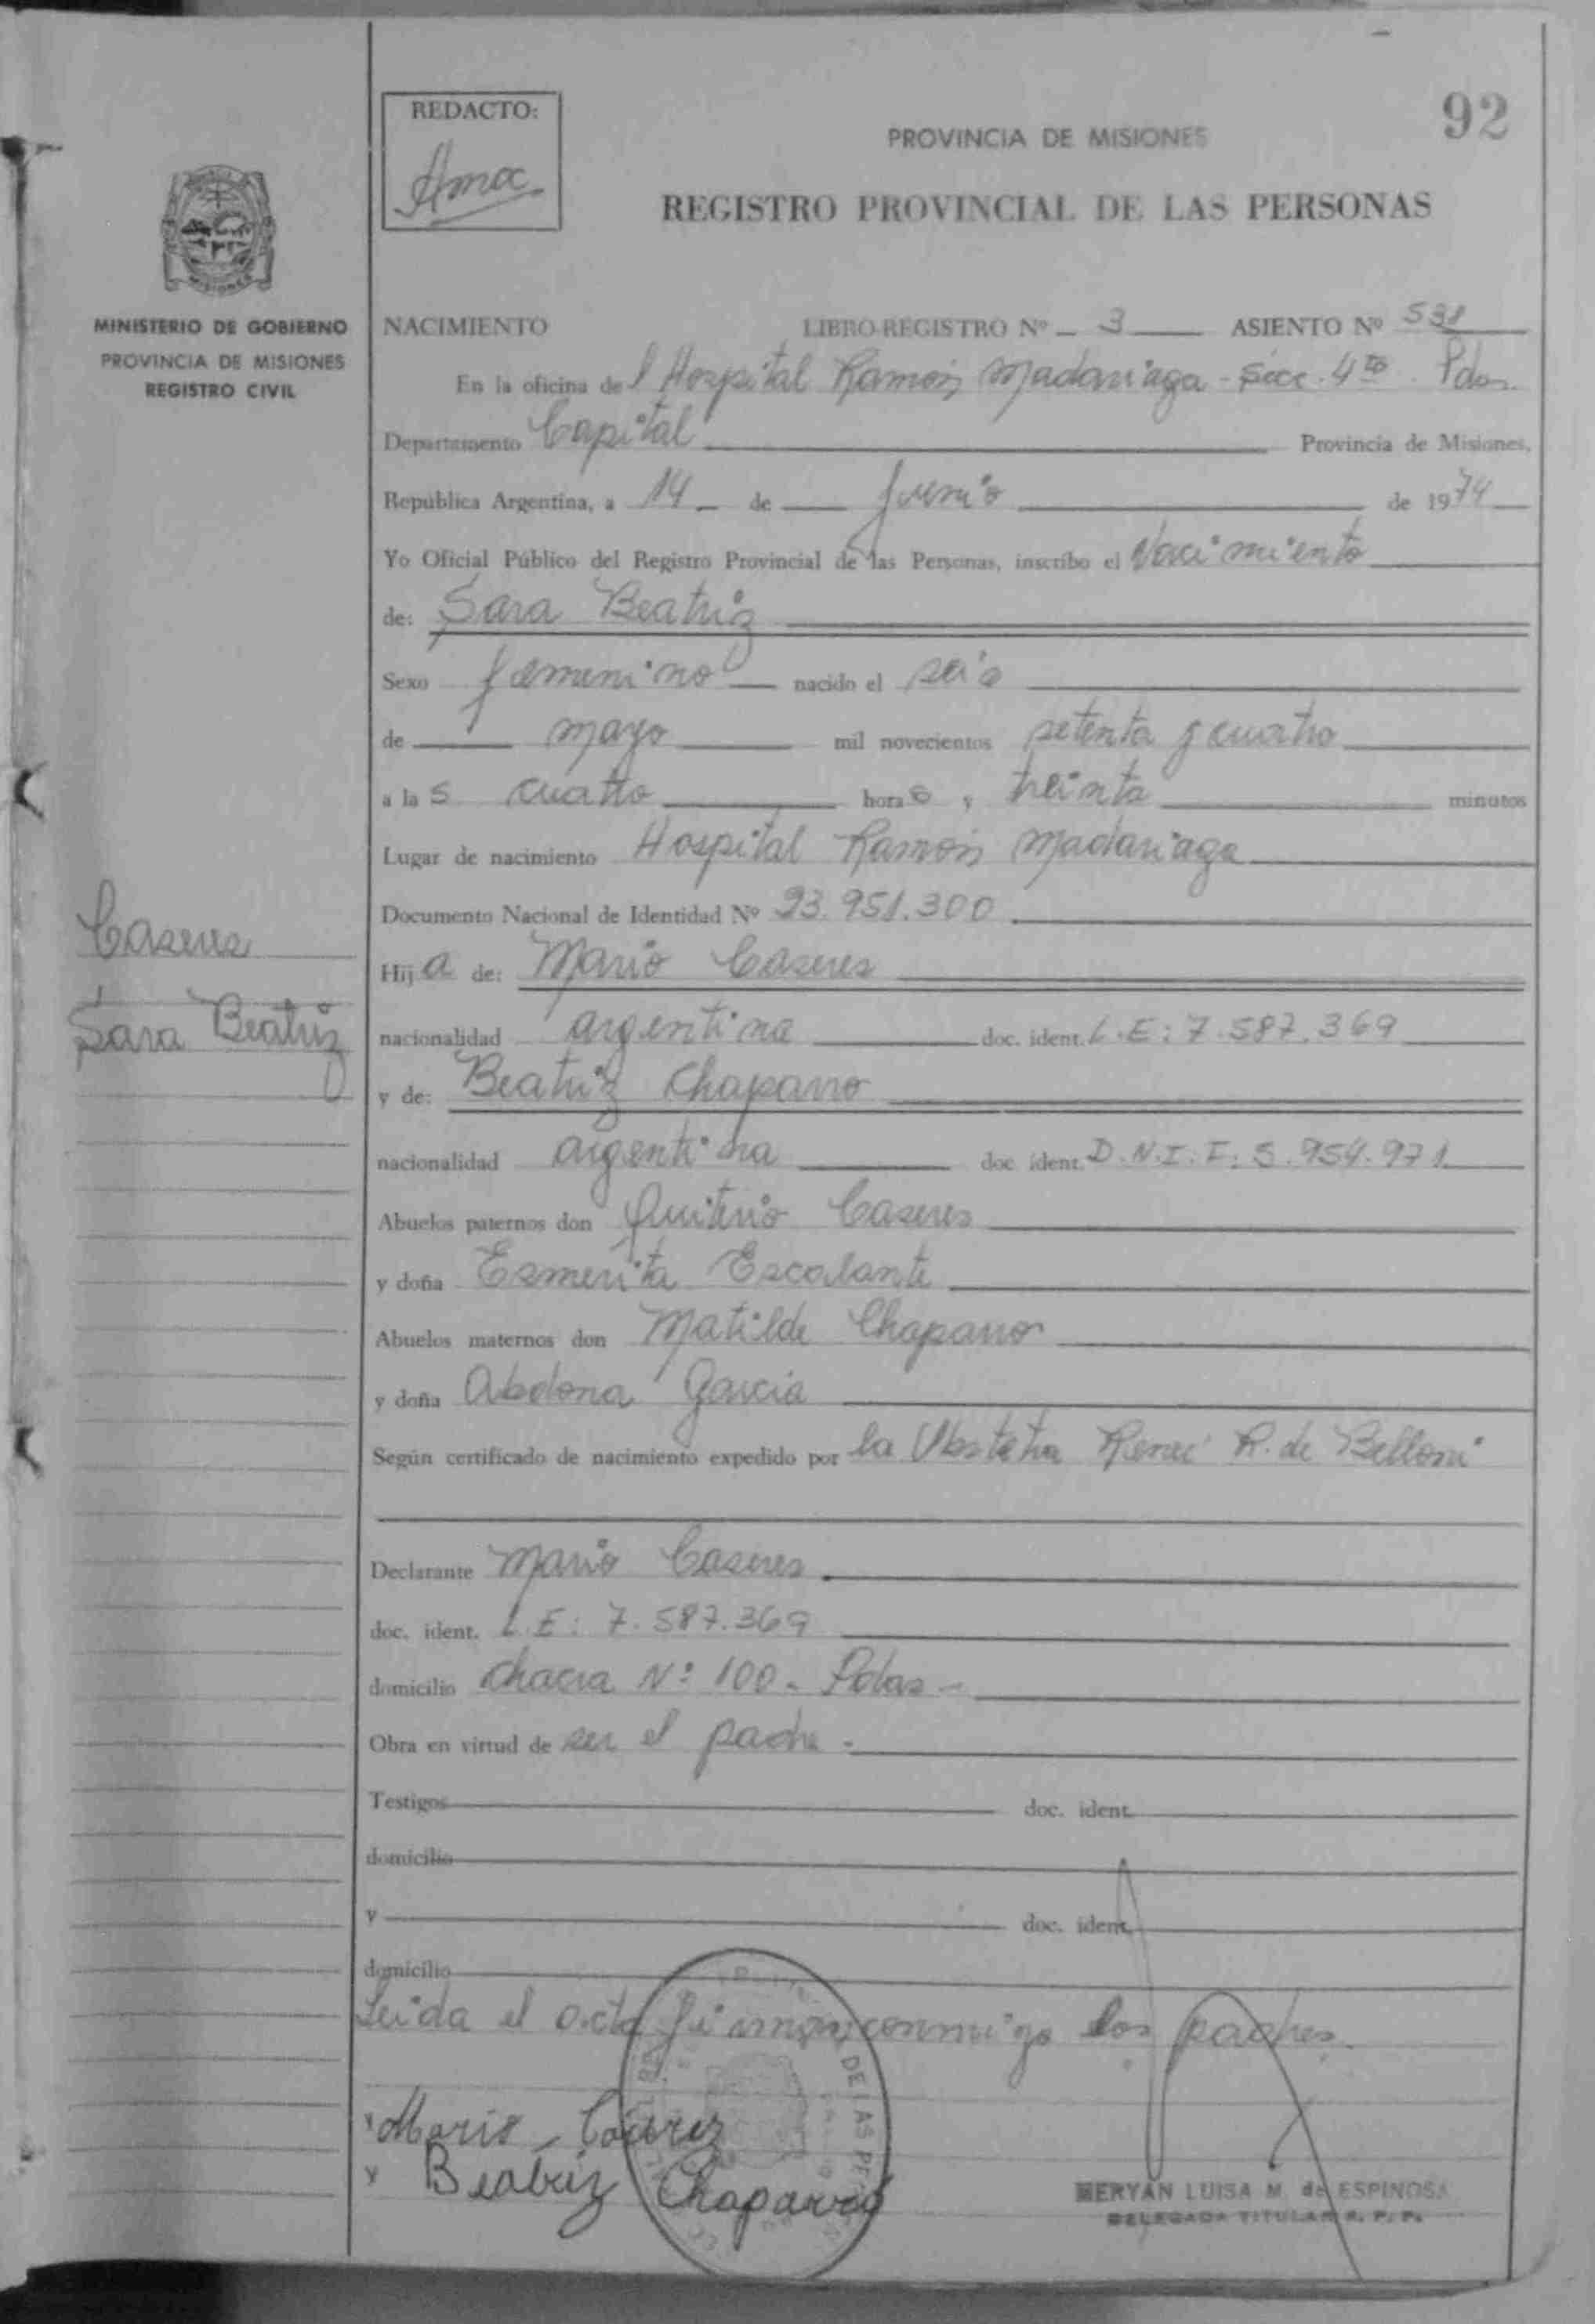 92
REDACTO:
PROVINCIA DE MISIONES
REGISTRO PROVINCIAL DE LAS PERSONAS
MISIONES
MINISTERIO DE GOBIERNO
PROVINCIA DE MISIONES
REGISTRO CIVIL
NACIMIENTO LIBRO-REGISTRO Nº 3 ASIENTO Nº 531
En la oficina del Hospital Ramón Madariaga - Secc. 4ta. Pdas.
Departamento Capital Provincia de Misiones,
República Argentina, a 14 de Junio de 1974
Yo Oficial Público del Registro Provincial de las Personas, inscribo el Nacimiento
de: Sara Beatriz
Sexo femenino nacido el seis
de mayo mil novecientos setenta y cuatro
a las cuatro horas y treinta minutos
Lugar de nacimiento Hospital Ramón Madariaga
Documento Nacional de Identidad Nº 23.951.300
Caseres
Hija de: Mario Caseres
Sara Beatriz
nacionalidad argentina doc. ident. L.E: 7.587.369
y de: Beatriz Chaparro
nacionalidad argentina doc ident. D.N.I. F. 5.954.971
Abuelos paternos don Quiterio Caseres
y doña Esmerita Escalante
Abuelos maternos don Matilde Chaparro
y doña Abdona Garcia
Según certificado de nacimiento expedido por la Obstetra Reneé R. de Belloni
Declarante Mario Caseres
doc. ident. L.E: 7.587.369
domicilio Chacra Nº 100 - Pdas -
Obra en virtud de ser el padre -
Testigos doc. ident.
domicilio
y doc. ident.
domicilio
Leída el acta firman conmigo los padres.
Mario Caseres
y Beatriz Chaparro
DE LAS PE
MERYAN LUISA M. de ESPINOSA
DELEGADA TITULAR R. P. P.